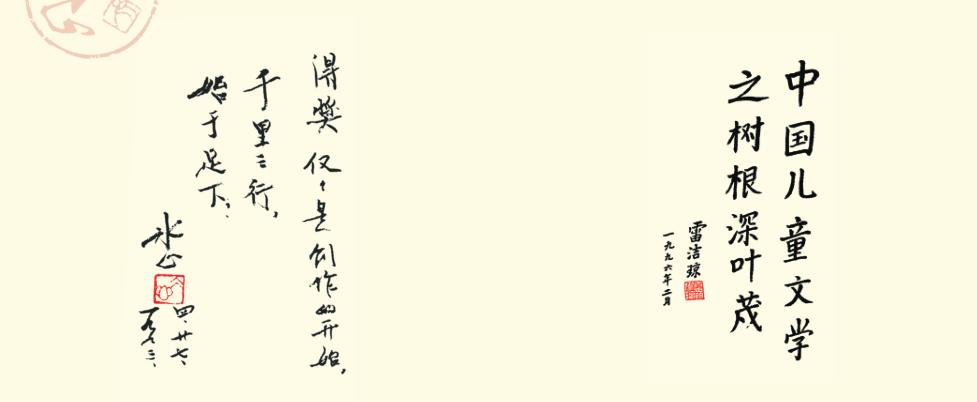 中国儿童文学
之树根深叶茂
雷洁琼
一九九六年二月
得奖仅々是创作的开始，
千里之行，
始于足下：
冰心
四、廿七、